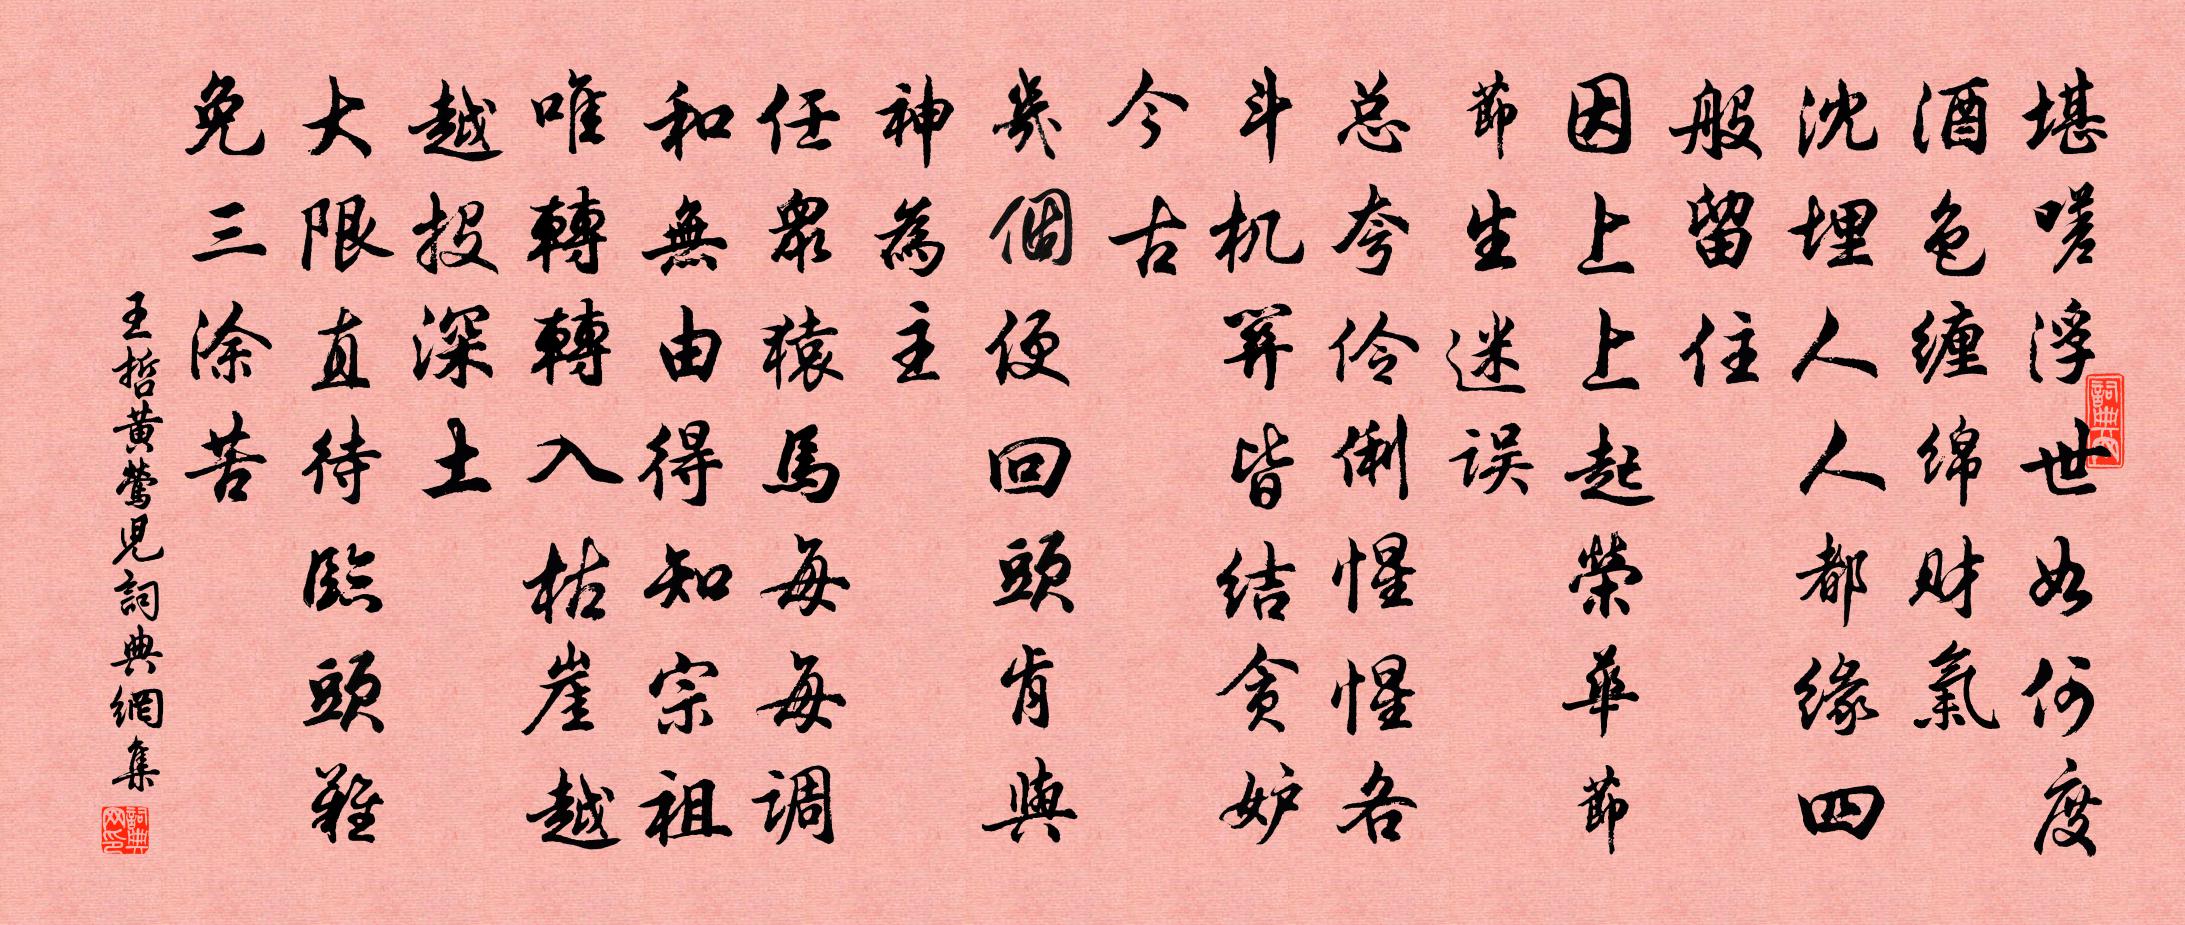 堪嗟浮世如何度
酒色缠绵财氣
沈埋人人都缘四
般留住
因上上起榮華節
節生迷误
总夸伶俐惺惺各
斗机筭皆结贪妒
今古
幾個便回頭肯與
神為主
任眾猿馬每每调
和無由得知宗祖
唯轉轉入枯崖越
越投深土
大限直待臨頭難
免三涂苦
王哲黄鶯児詞典網集
詞典网
詞典网印